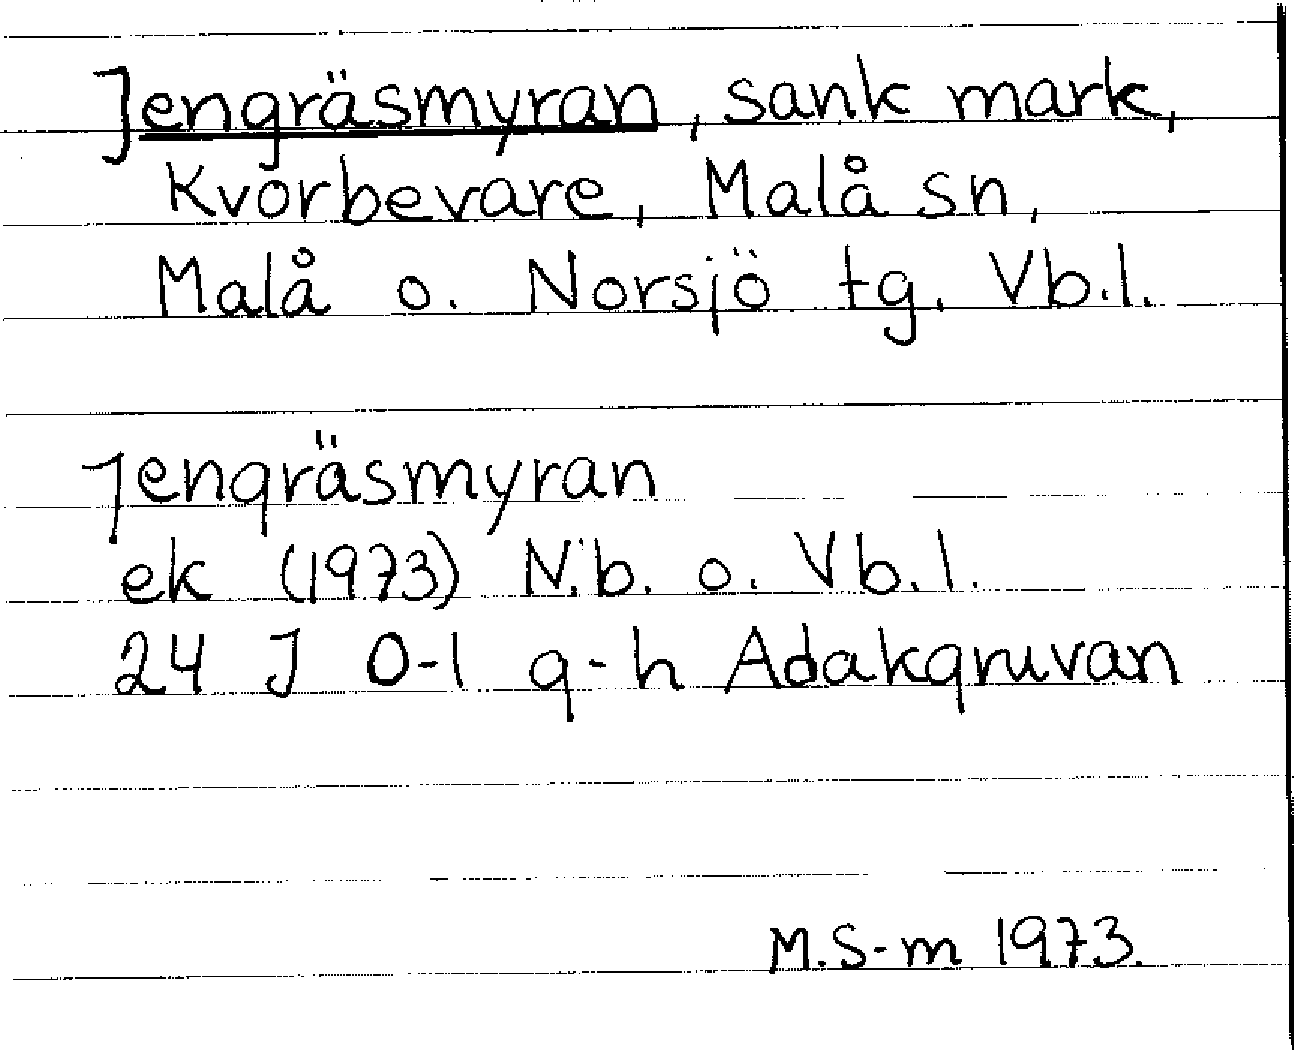 Jengräsmyran, sank mark,
Kvorbevare, Malå sn,
Malå o. Norsjö tg. Vb.l.
Jengräsmyran
ek (1973) N.b. o. Vb.l.
24 J 0-1 g-h Adakgruvan
M.S-m 1973.